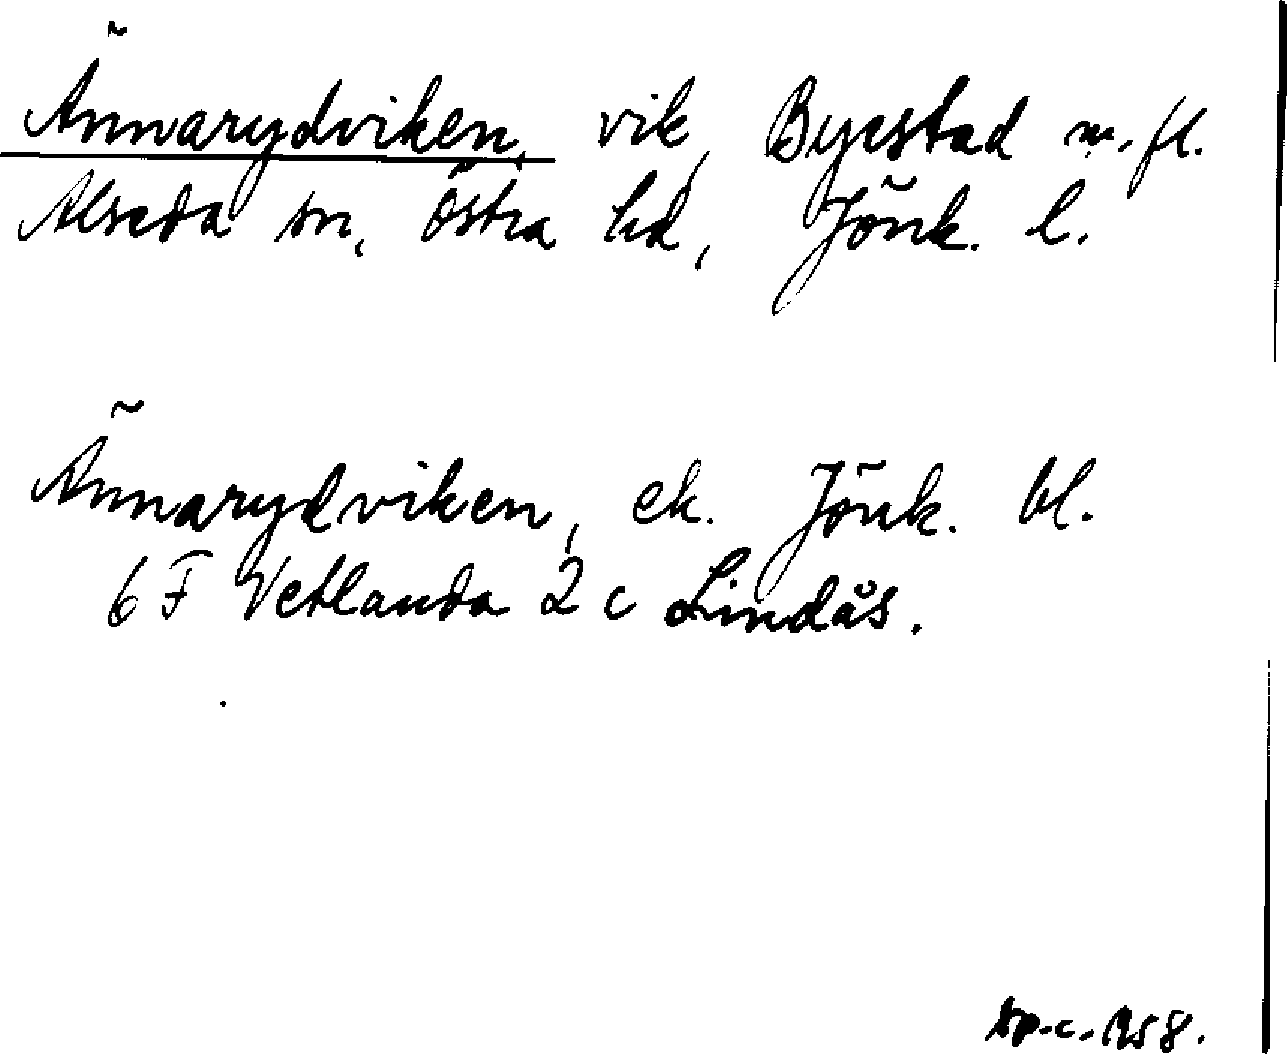 Ännarydviken, vik, Byestad m.fl.
Alseda sn, Östra hd, Jönk. l.
Ännarydviken, ek. Jönk. bl.
6 F Vetlanda 2 c Lindås.
1958.